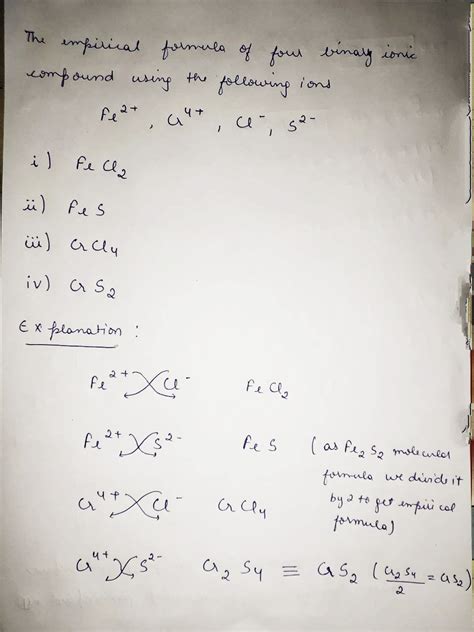 The empirical formula of four binary ionic
compound using the following ions
Fe²⁺, Cr⁴⁺, Cl⁻, S²⁻
i) FeCl₂
ii) FeS
iii) CrCl₄
iv) CrS₂
Explanation :
Fe²⁺ Cl⁻ FeCl₂
Fe²⁺ S²⁻ FeS (as Fe₂S₂ molecular
formula we divide it
by 2 to get empirical
formula)
Cr⁴⁺ Cl⁻ CrCl₄
Cr⁴⁺ S²⁻ Cr₂S₄ ≡ CrS₂ (Cr₂S₄/2 = CrS₂)